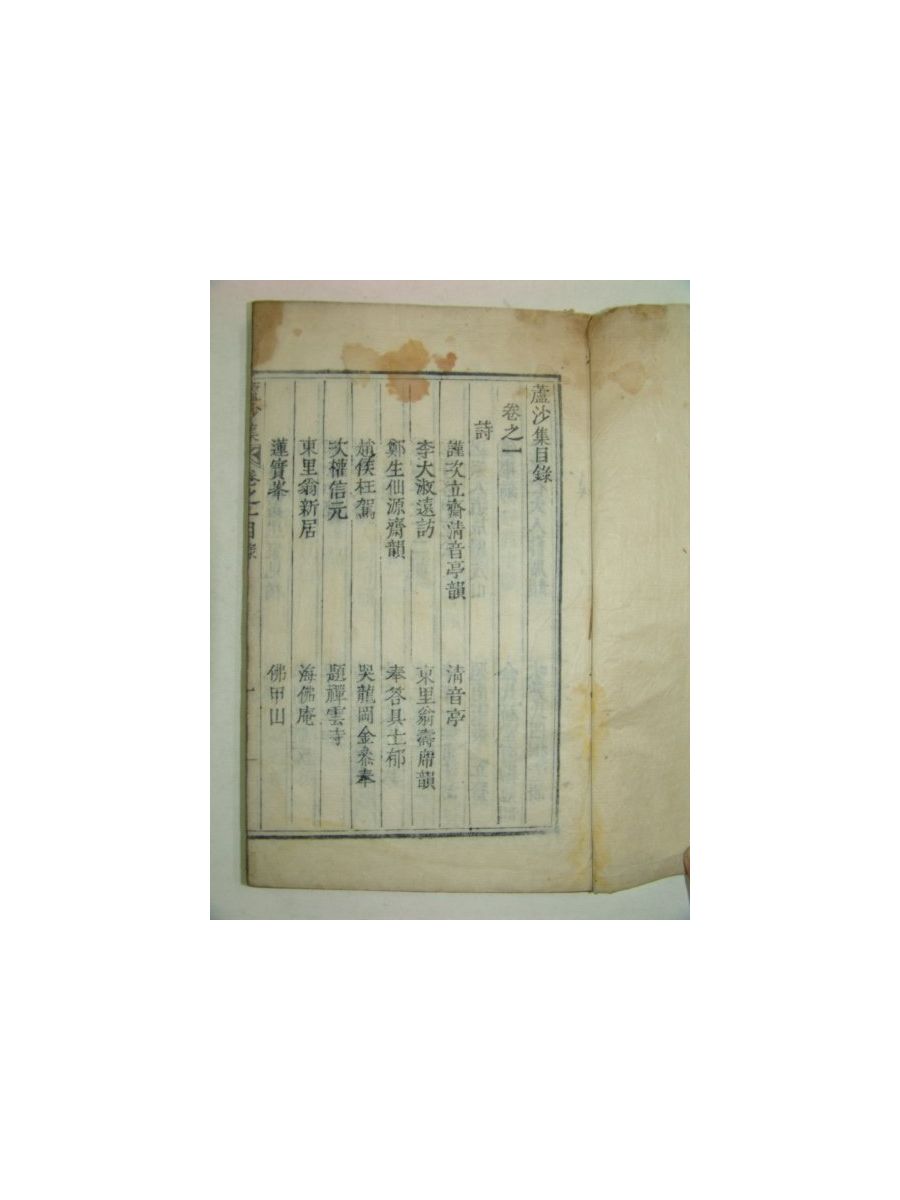 蘆沙集目錄
卷之一
詩
謹次立齋淸音亭韻 淸音亭
李大淑遠訪 東里翁壽席韻
鄭生仙源齋韻 奉答具士郁
趙侯枉駕 哭龍岡金叅奉
次權信元 題禪雲寺
東里翁新居 海佛庵
蓮實峯 佛甲山
蘆沙集 卷之一目錄 一